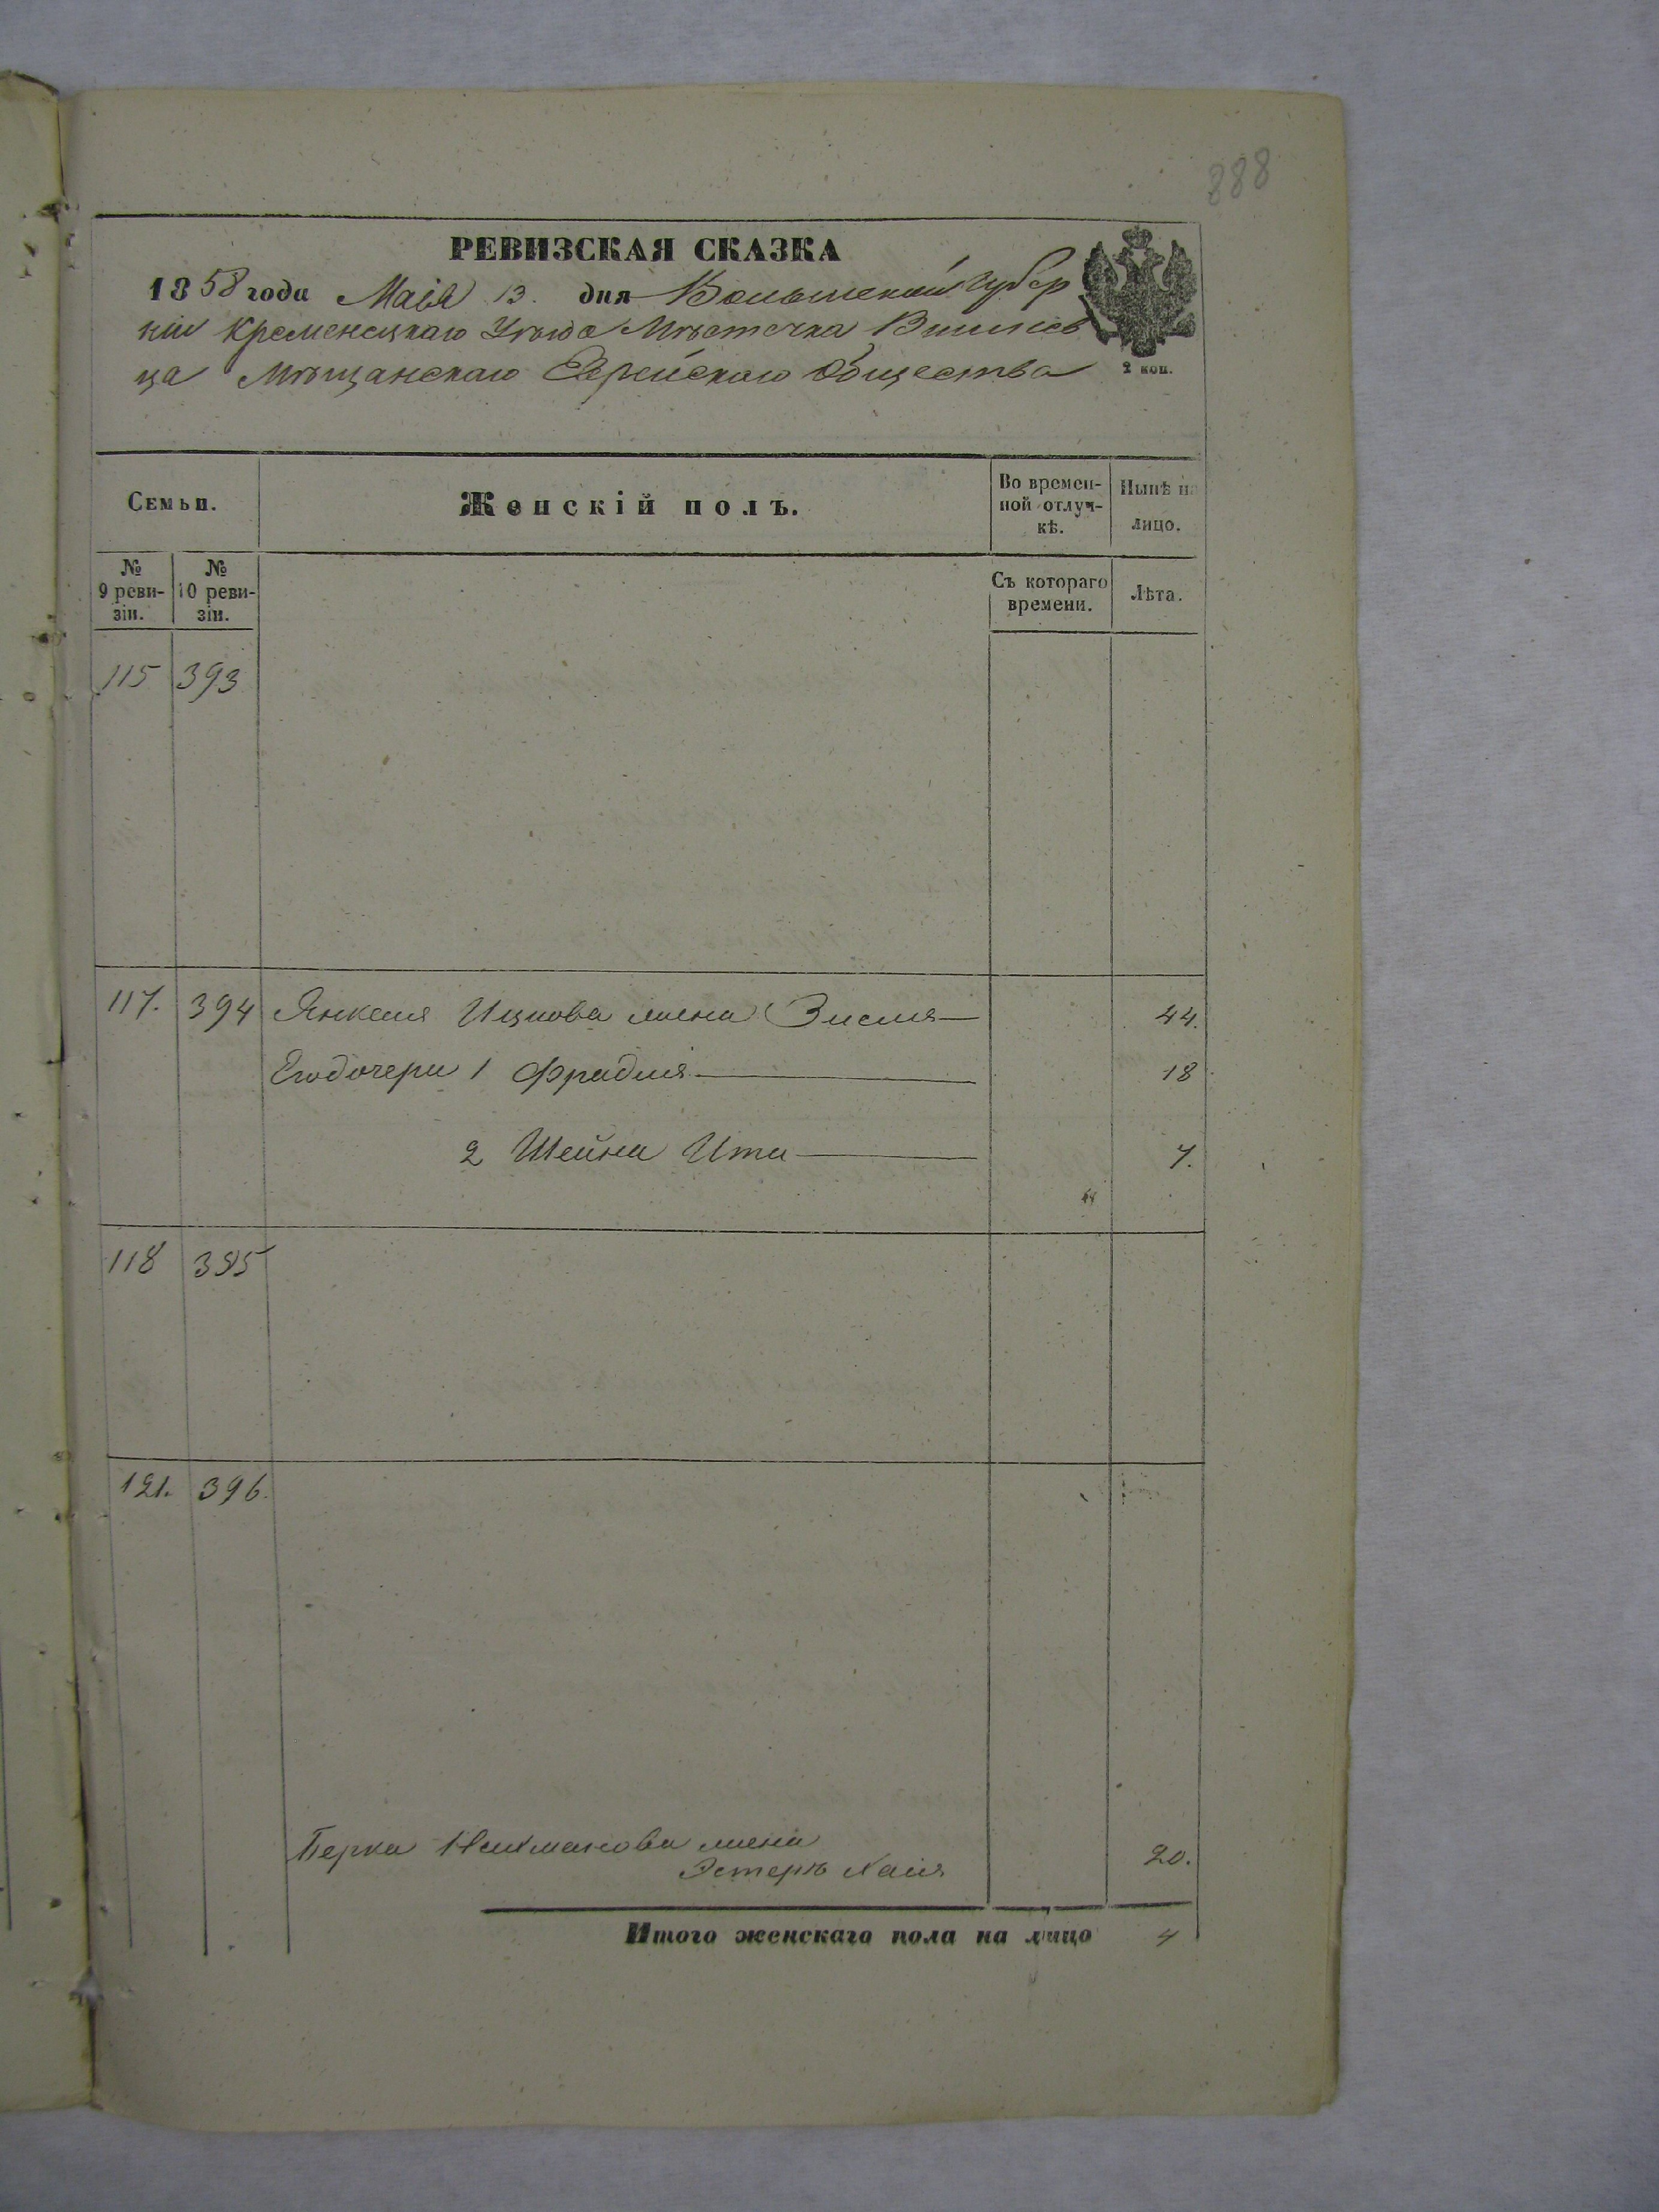 888
РЕВИЗСКАЯ СКАЗКА
1858 года Маія 13. дня Волынской Губер
ніи Кременецкаго Уѣзда Мѣстечка Вишнев
ца Мѣщанскаго Еврейскаго Общества
2 коп.
Семьи.
Женскій полъ.
Во времен-
ной отлуч-
кѣ.
Нынѣ на
лицо.
№
9 реви-
зіи.
№
10 реви-
зіи.
Съ котораго
времени.
Лѣта.
115 393
117. 394 Янкеля Ицкова жена Зисля 44.
Его дочери 1 Фрадля 18
2 Шейна Ита 7.
118 395
121. 396.
Берка жена
Эстеръ Хаия 20.
Итого женскаго пола на лицо 4